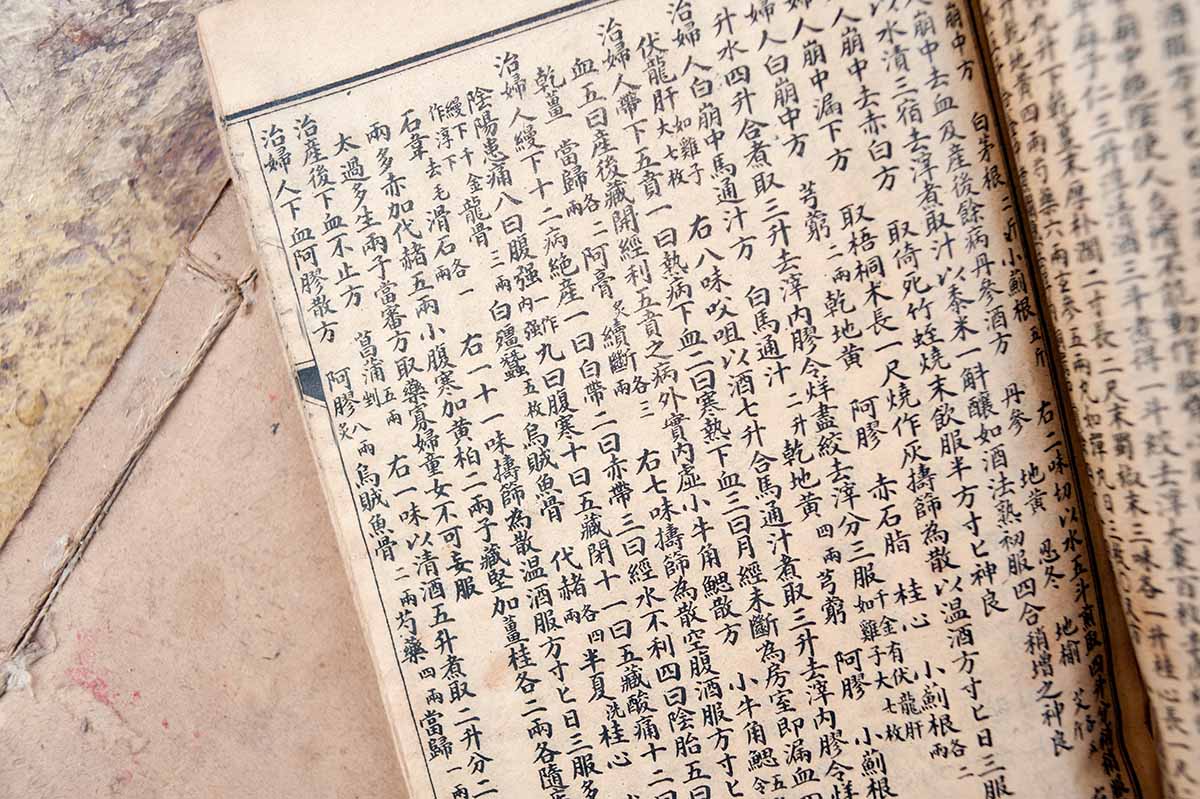 崩中絶陰使人怠惰不能動作
麻子仁三升清酒三斗煮得一斗絞去滓大棗百枚
九升下乾薑末厚朴濶二寸長二尺末蜀椒末三味各一升桂心長一尺
乾地黄四兩芍藥六兩玄參五兩丸如彈丸日三
崩中方 白茅根二斤 小薊根五斤 右二味切以水五斗煎取四斗
人崩中去血及産後餘病丹參酒方 丹參 地黄 忍冬 地榆 艾
以水漬三宿去滓煮取汁以黍米一斛釀如酒法熟初服四合稍增之神良
人崩中去赤白方 取倚死竹蛭燒末飲服半方寸匕神良
人崩中漏下方 取梧桐木長一尺燒作灰擣篩為散以温酒方寸匕日三服
婦人白崩中方 芎藭二兩 乾地黄 阿膠 赤石脂 桂心千金有伏龍肝如雞子大七枚 小薊根各二兩
升水四升合煮取三升去滓内膠令烊盡絞去滓分三服
治婦人白崩中馬通汁方 白馬通汁二升 乾地黄四兩 芎藭 阿膠 小薊根
伏龍肝如雞子大七枚 右八味㕮咀以酒七升合馬通汁煮取三升去滓内膠令烊
治婦人帶下五賁一曰熱病下血二曰寒熱下血三曰月經未斷為房室即漏血四
血五曰産後藏開經利五賁之病外實内虛小牛角䚡散方 小牛角䚡五
乾薑 當歸各二兩 阿膏炙 續斷各三兩 右七味擣篩為散空腹酒服方寸匕
治婦人縵下十二病絶産一曰白帶二曰赤帶三曰經水不利四曰陰胎五曰
陰陽患痛八曰腹强一作内强九曰腹寒十曰五藏閉十一曰五藏酸痛十二曰
縵下千金作淳下 龍骨三兩 白殭蠶五枚 烏賊魚骨 代赭各四兩 半夏洗 桂心
石韋去毛 滑石各一 右一十一味擣篩為散温酒服方寸匕日三服多
兩多赤加代赭五兩小腹寒加黄柏二兩子藏堅加薑桂各二兩各隨
太過多生兩子當審方取藥寡婦童女不可妄服
治産後下血不止方 菖蒲五兩剉 右一味以清酒五升煮取二升分二
治婦人下血阿膠散方 阿膠八兩炙 烏賊魚骨二兩 芍藥四兩 當歸一兩